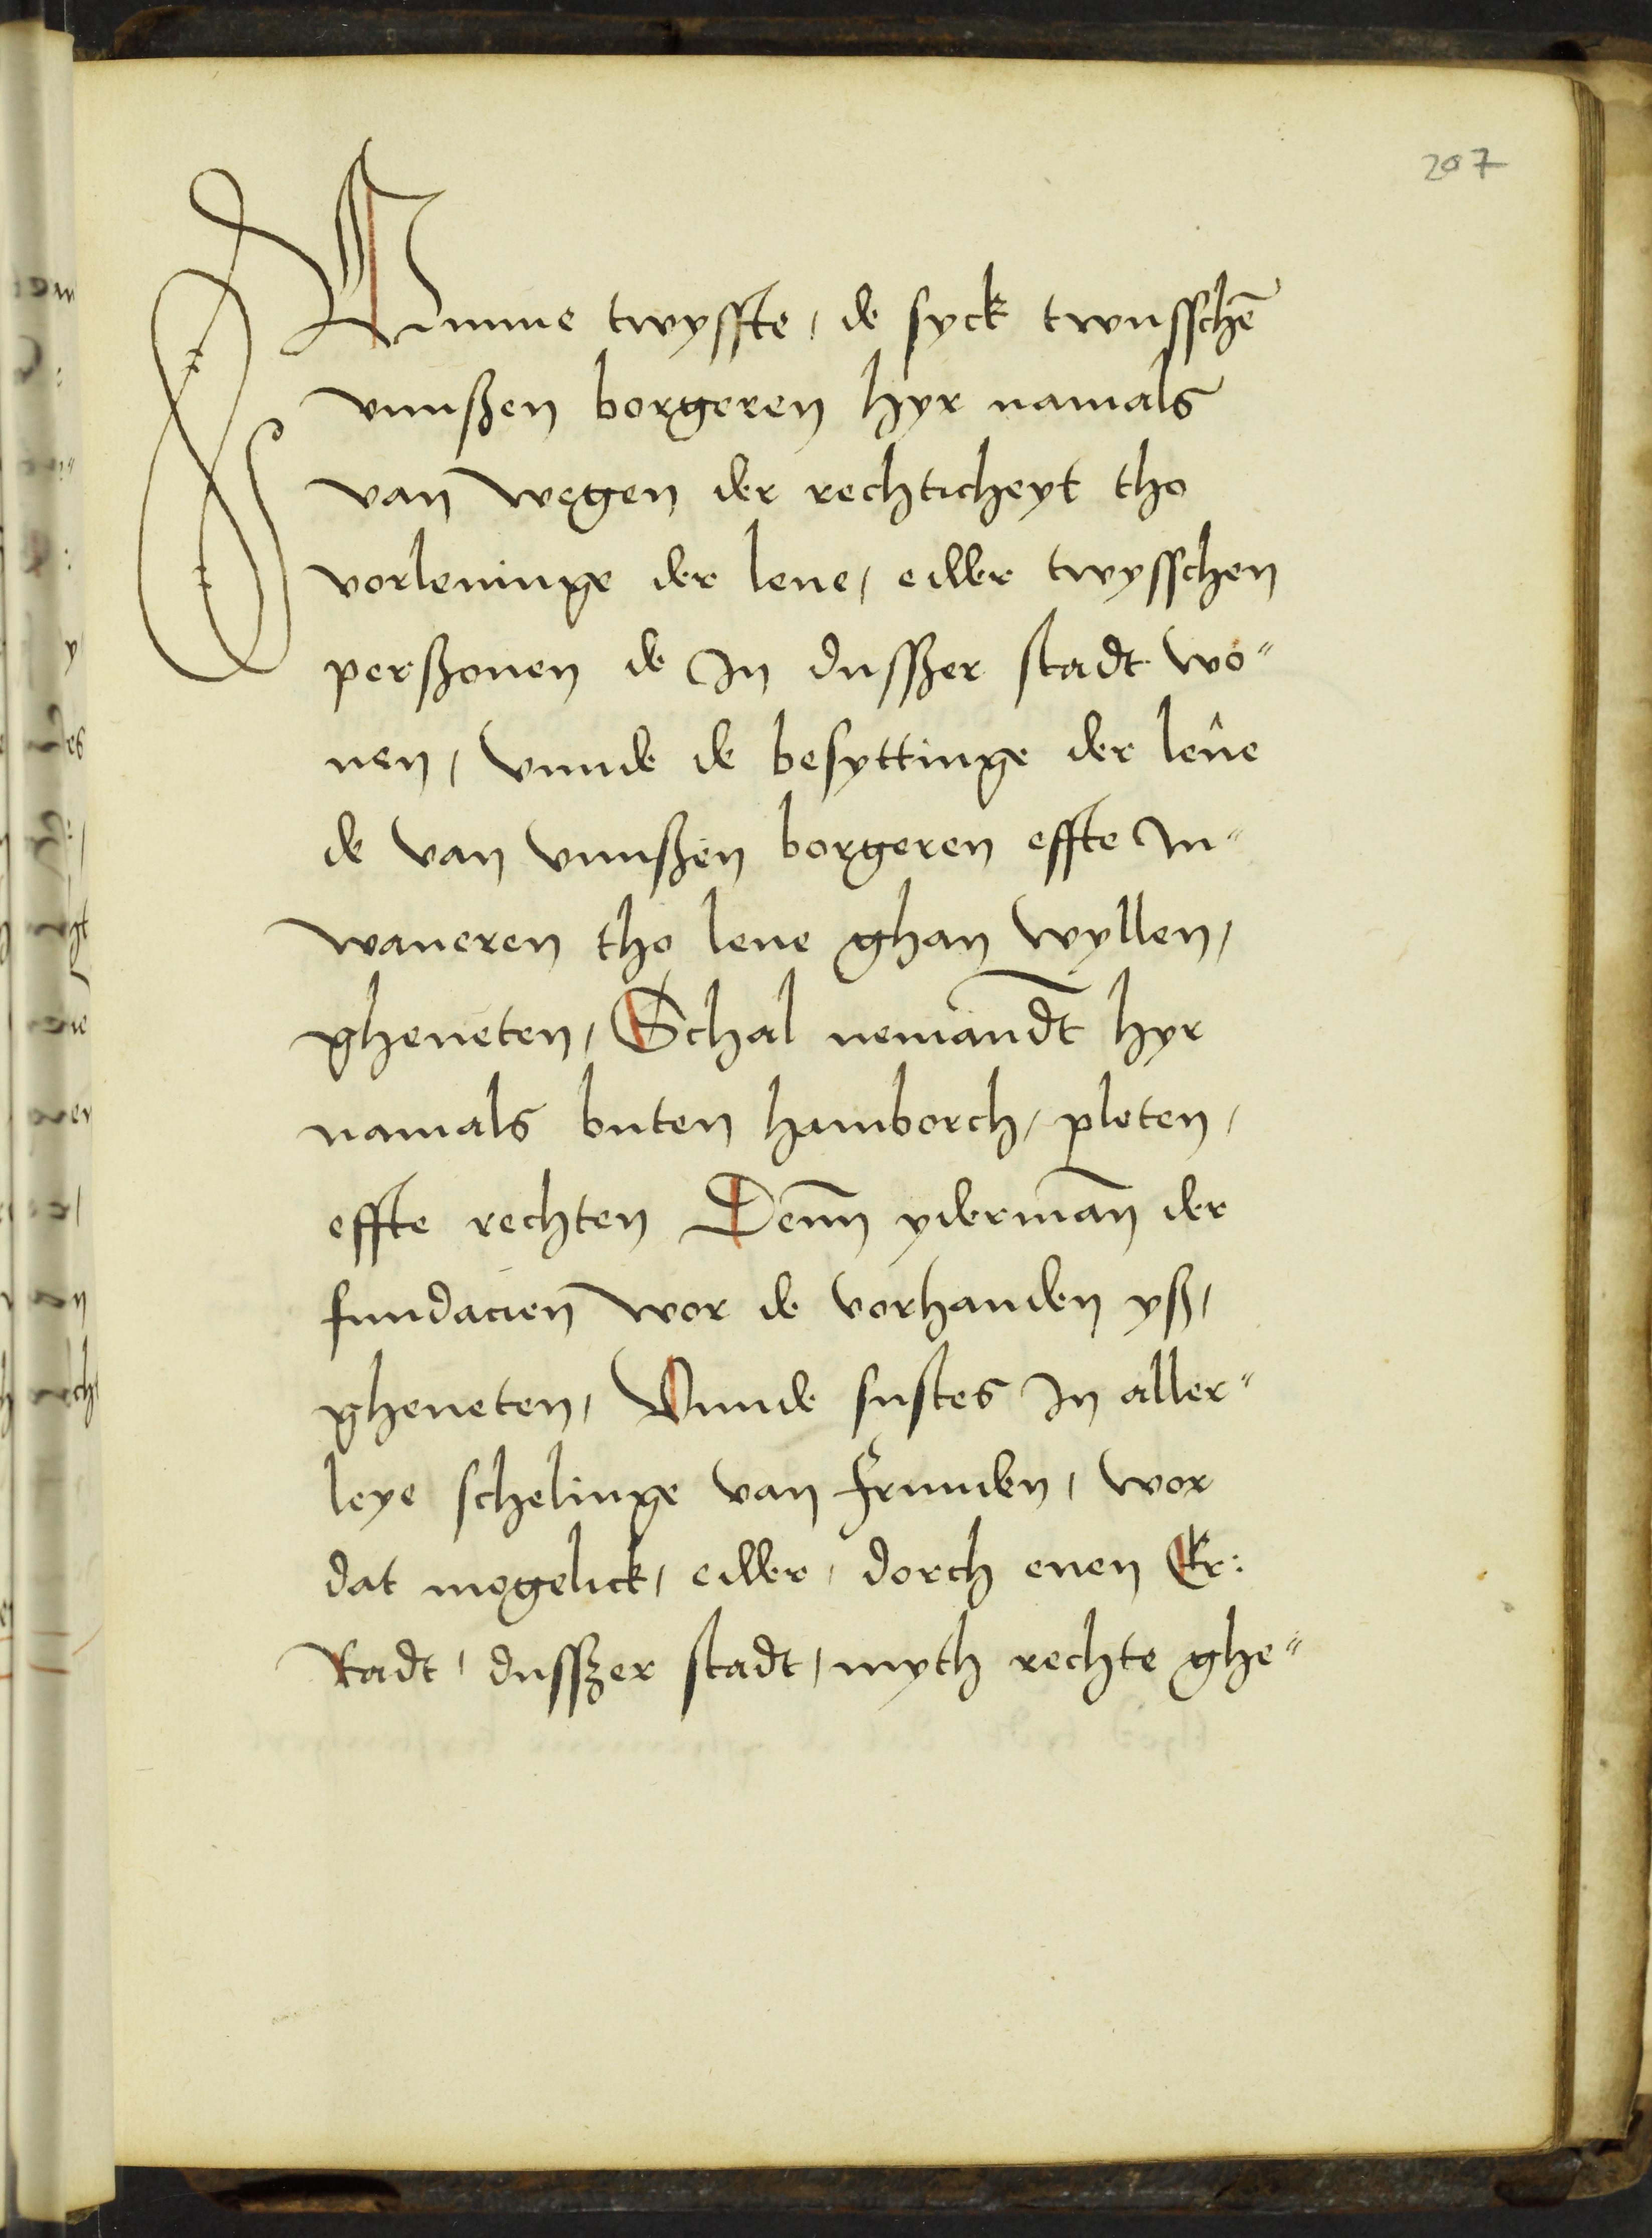 207
Umme twyffte, de syck twusschē
vnnßen borgeren hyr namals
van wegen der rechticheyt tho
vorleninge der lene, edder twysschen
perßonen de In dusßer stadt wo"
nen, vnnde de besyttinge der lene
de van vnnßen borgeren effte In"
waneren tho lene ghan wyllen,
gheneten, Schal nemandt hyr
namals buten hamborch, pleten,
effte rechten Denn yderman der
fundacien wor de vorhanden yß,
gheneten, Vnnde sustes In aller"
leye schelinge van frunden, wor
dat mogelick, edder, dorch enen Er:
Radt, dusßer stadt, myth rechte ghe"